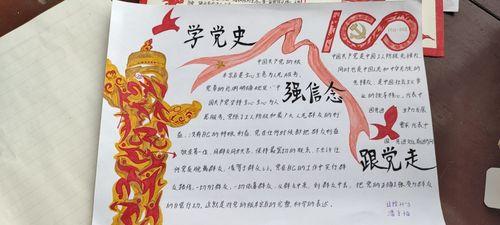 学党史
100
中国共产党的根
本宗旨是全心全意为人民服务。
强信念
中国共产党是中国工人阶级先锋队，
同时也是中国人民和中华民族的
先锋队，是中国社会主义事
业的领导核心，代表中
跟党走
国共产党坚持全心全意为人
民服务。党除了工人阶级和最广大人民群众的利
益，没有自己的特殊利益。党在任何时候都把群众利益
放在第一位，同群众同甘共苦，保持最密切的联系，不允许任
何党员脱离群众，凌驾于群众之上。党在自己的工作中实行群众
路线，一切为了群众，一切依靠群众，从群众中来，到群众中去，把党的正确主张变为群众
的自觉行动。这就是对党的根本宗旨的完整、科学的表述。